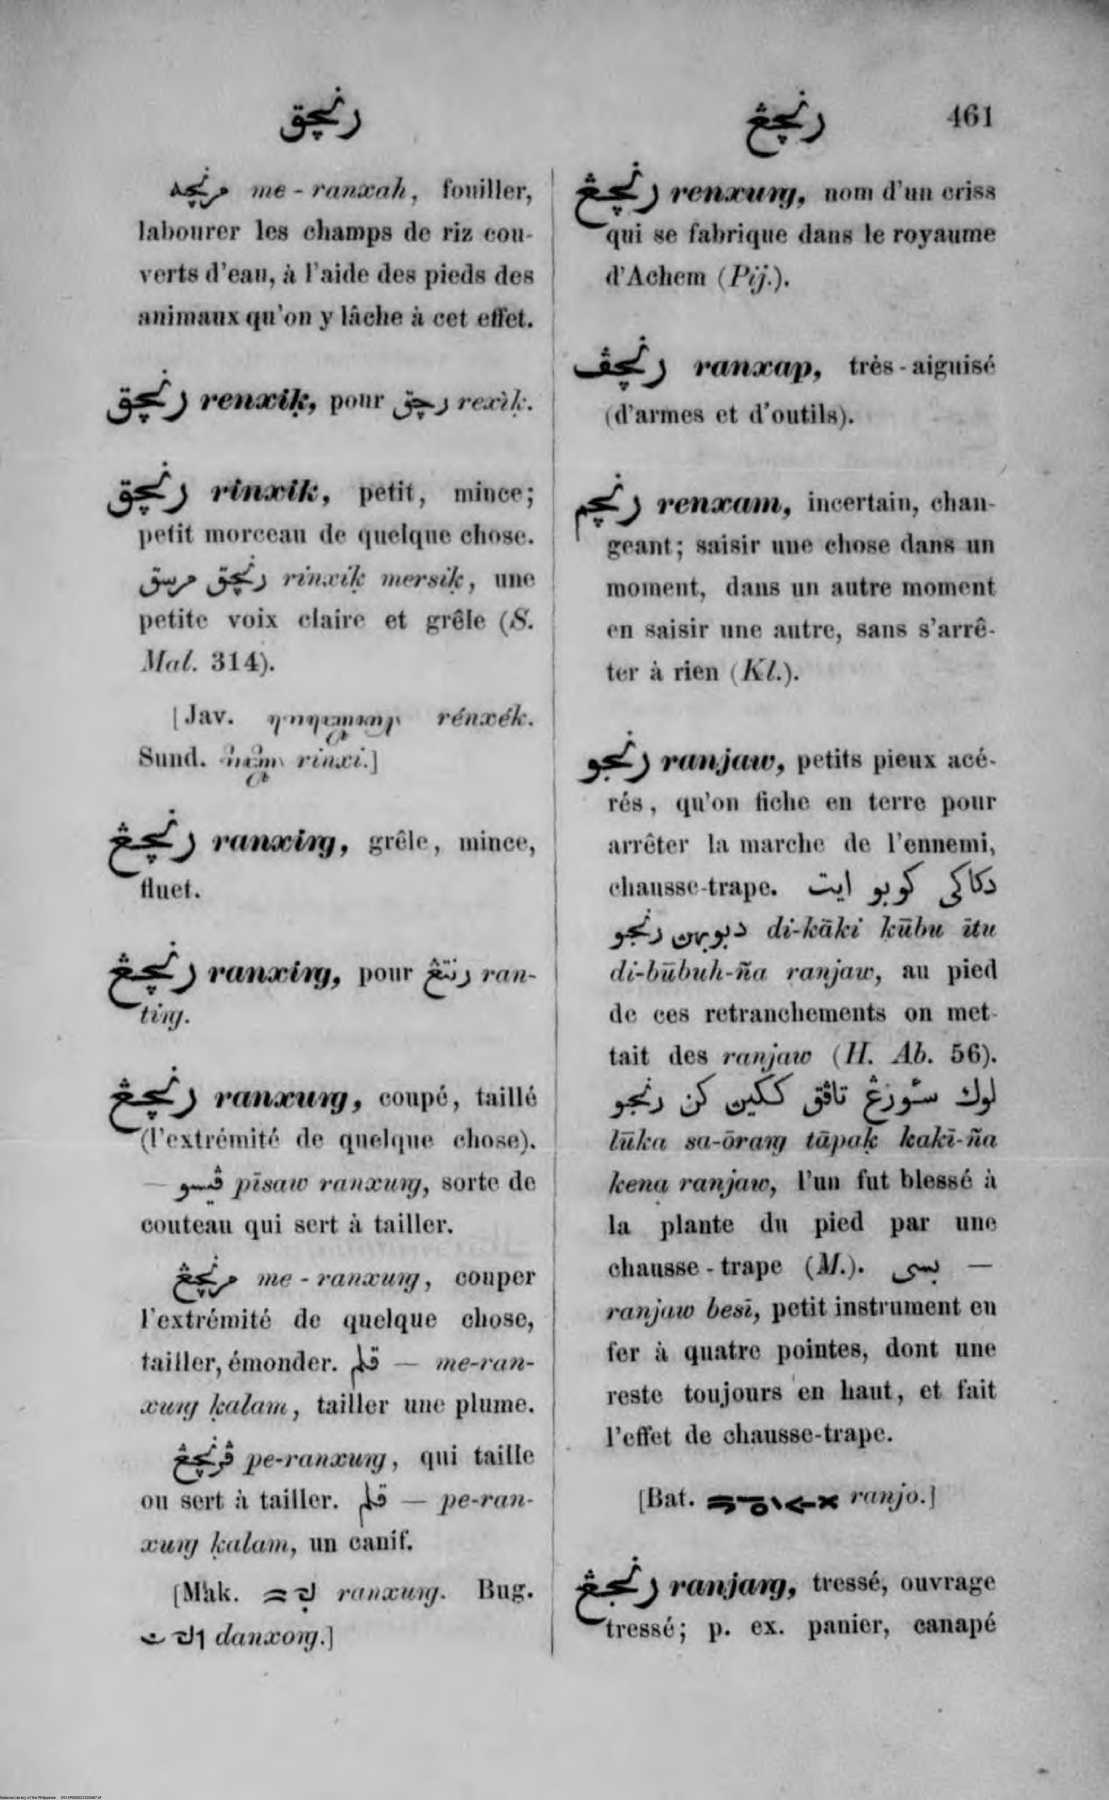 رنچق
رنچڠ 461
مرنچه me-ranxah, fouiller,
labourer les champs de riz cou-
verts d'eau, à l'aide des pieds des
animaux qu'on y lâche à cet effet.
رنچق renxiḳ, pour رچق rexiḳ.
رنچق rinxik, petit, mince;
petit morceau de quelque chose.
رنچق مرسق rinxiḳ mersiḳ, une
petite voix claire et grêle (S.
Mal. 314).
[Jav. rénxék.
Sund. rinxi.]
رنچڠ ranxiŋ, grêle, mince,
fluet.
رنچڠ ranxiŋ, pour رنتڠ ran-
tiŋ.
رنچڠ ranxuŋ, coupé, taillé
(l'extrémité de quelque chose).
— ڤيسو pīsaw ranxuŋ, sorte de
couteau qui sert à tailler.
مرنچڠ me-ranxuŋ, couper
l'extrémité de quelque chose,
tailler, émonder. قلم — me-ran-
xuŋ ḳalam, tailler une plume.
ڤرنچڠ pe-ranxuŋ, qui taille
ou sert à tailler. قلم — pe-ran-
xuŋ ḳalam, un canif.
[Mak. ranxuŋ. Bug.
danxoŋ.]
رنچڠ renxuŋ, nom d'un criss
qui se fabrique dans le royaume
d'Achem (Pij.).
رنچڤ ranxap, très-aiguisé
(d'armes et d'outils).
رنچم renxam, incertain, chan-
geant; saisir une chose dans un
moment, dans un autre moment
en saisir une autre, sans s'arrê-
ter à rien (Kl.).
رنجو ranjaw, petits pieux acé-
rés, qu'on fiche en terre pour
arrêter la marche de l'ennemi,
chausse-trape. دكاكي كوبو ايت
دبوبهن رنجو di-kāki kūbu ītu
di-būbuh-ña ranjaw, au pied
de ces retranchements on met-
tait des ranjaw (H. Ab. 56).
لوك سٔورڠ تاڤق ككين كن رنجو
lūka sa-ōraŋ tāpaḳ kakī-ña
kena ranjaw, l'un fut blessé à
la plante du pied par une
chausse-trape (M.). بسي —
ranjaw besī, petit instrument en
fer à quatre pointes, dont une
reste toujours en haut, et fait
l'effet de chausse-trape.
[Bat. ranjo.]
رنجڠ ranjaŋ, tressé, ouvrage
tressé; p. ex. panier, canapé